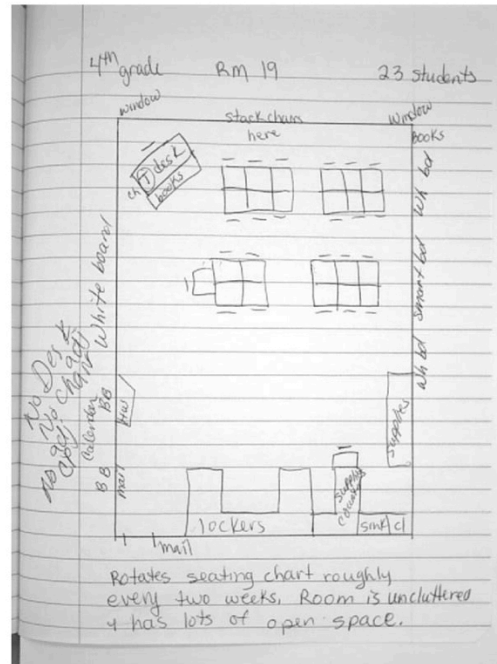 4th grade RM 19 23 students
window stack chairs here window
books
T desk
ch
books
Wh bd
Smart bd
Wh bd
White board
No Desk
No Change
Calendar
BB
HW
BB
mail
supplies
supply counter
lockers
sink
cl
mail
Rotates seating chart roughly
every two weeks. Room is uncluttered
& has lots of open space.